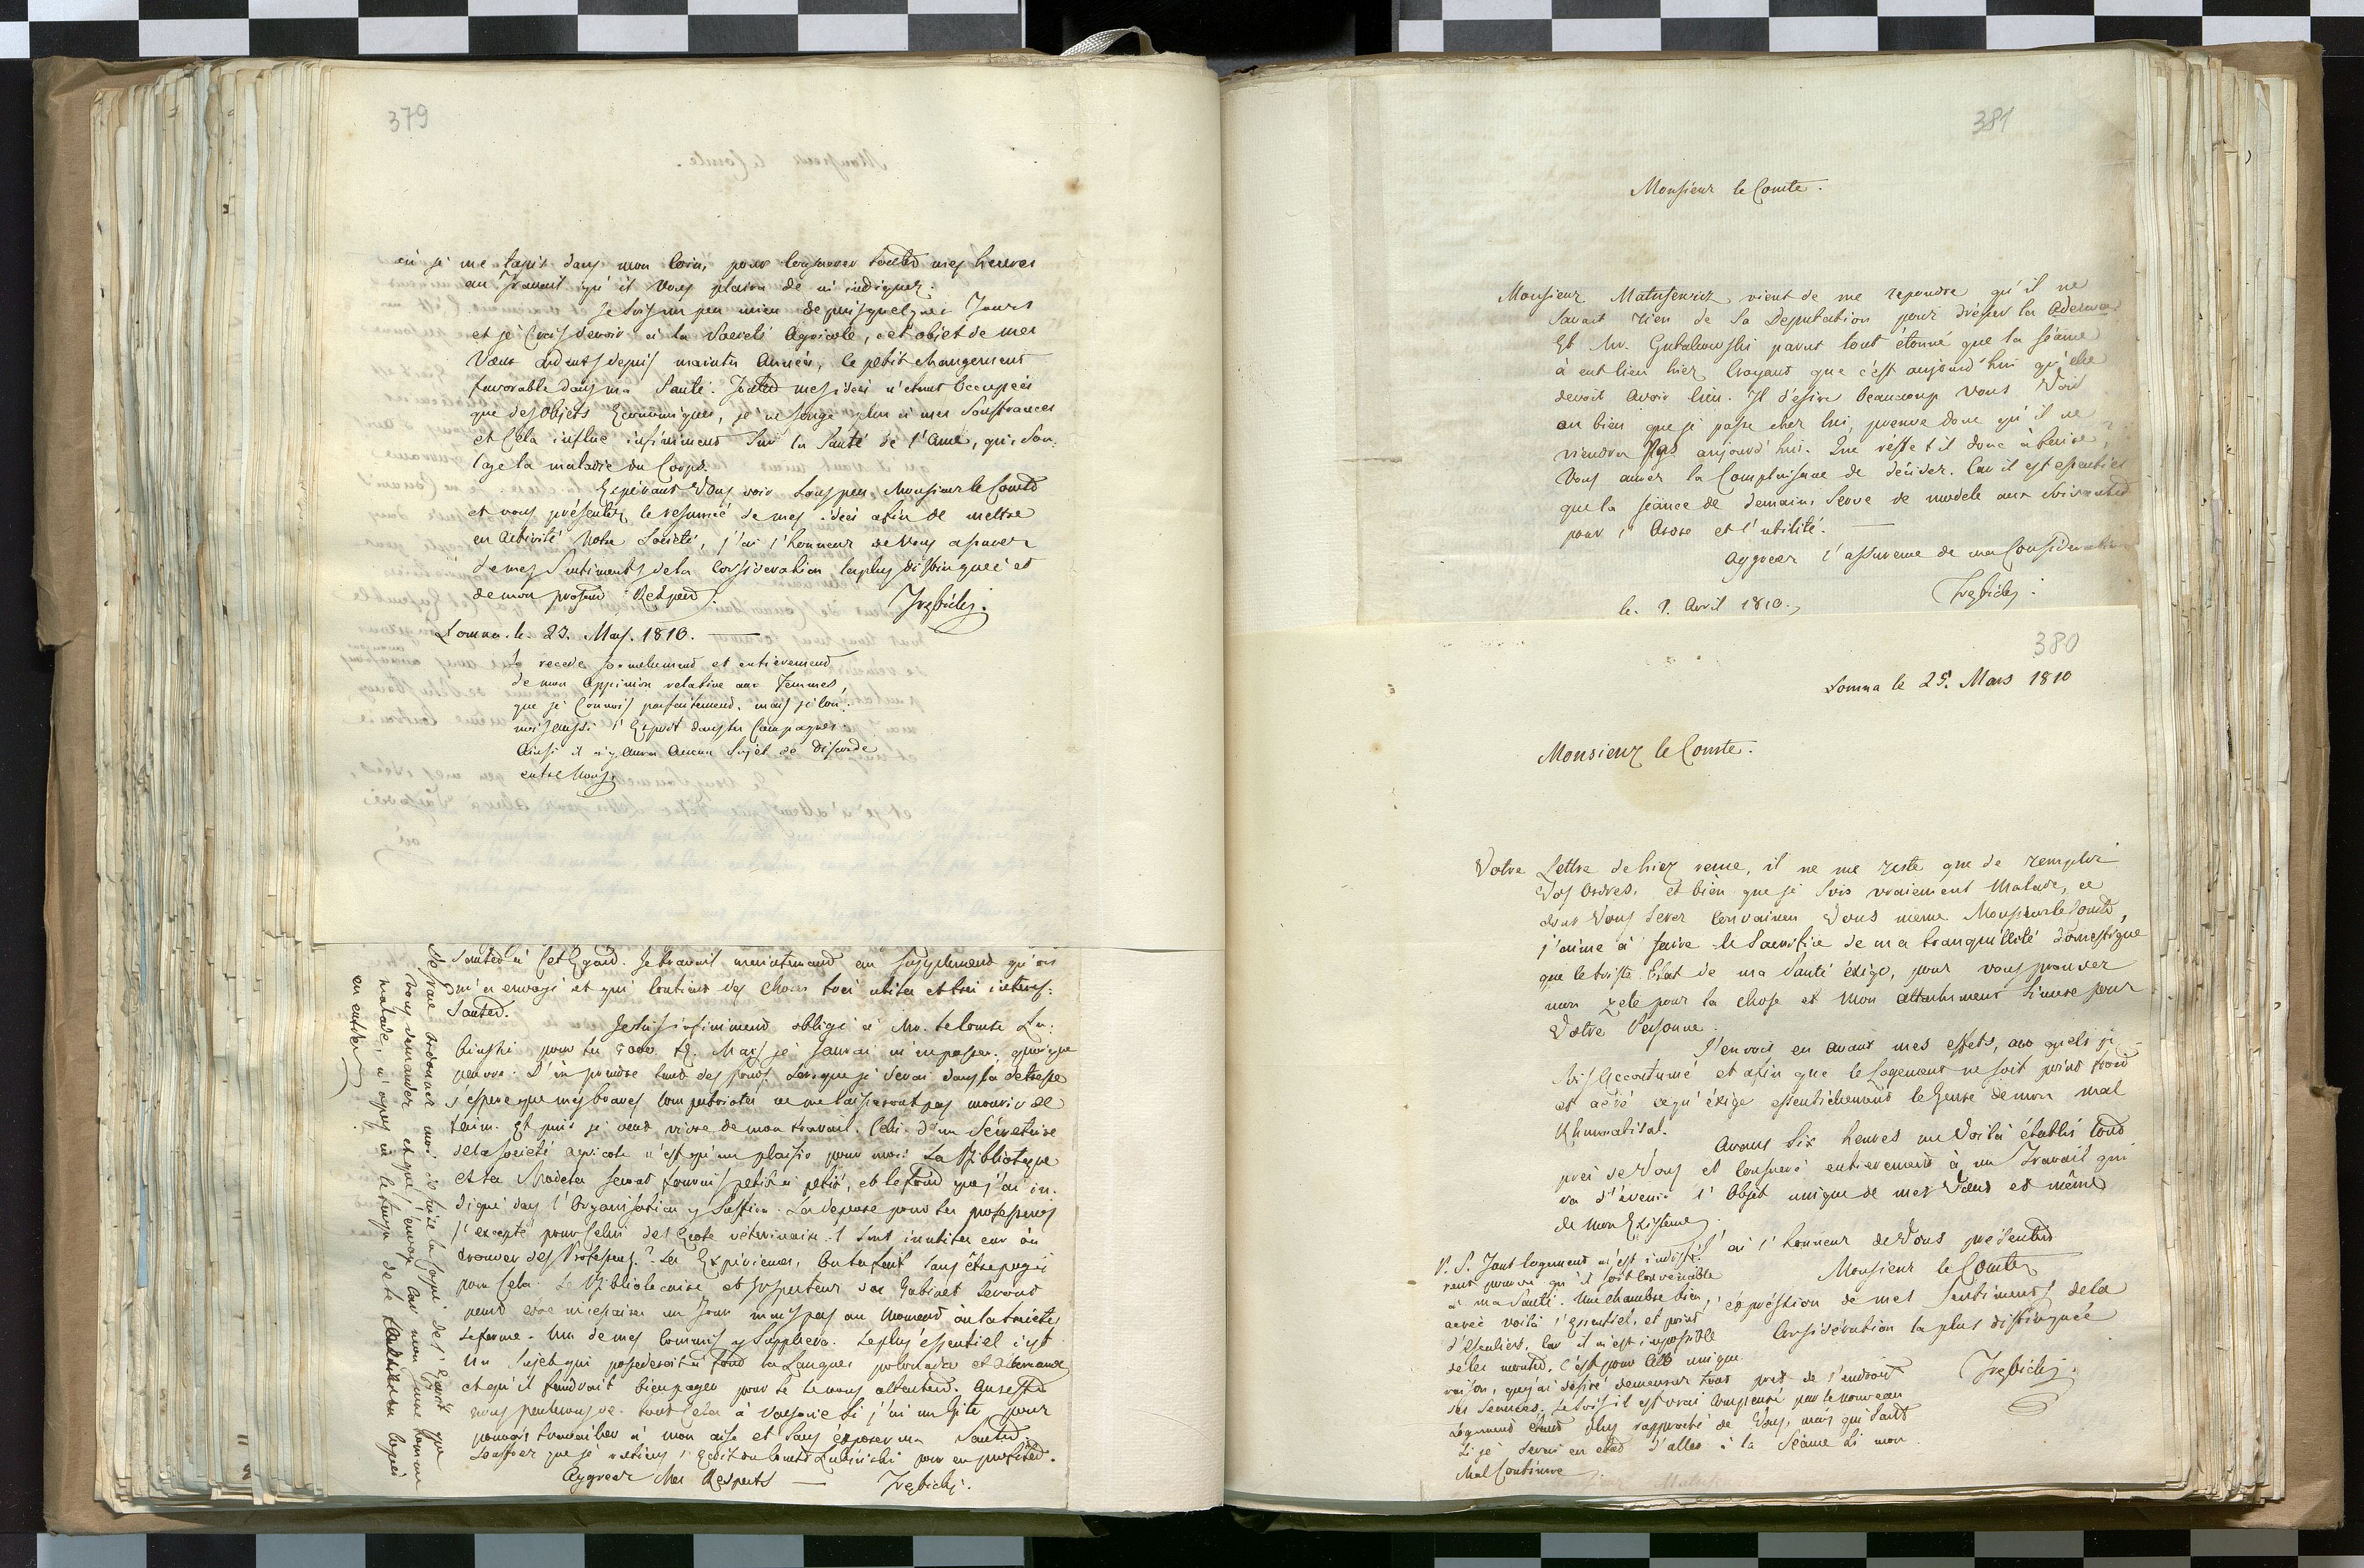 379
où je me tapis dans mon Coin, pour Consacrer toutes mes heures
au Travail qu'il Vous plaira de m'indiquer.
Je suis un peu mieu depuis quelques Jours
et je Crois devoir à la Societé Agricole, cet objet de mes
Vœux ardents depuis maintes Années, le petit changement
favorable dans ma Santé. Toutes mes idées n'etant Occupées
que des Objets Economiques, je ne songe plus à mes Souffrances
et Cela influe infiniment Sur la Santé de l'Ame, qui Sou:
lage la maladie du Corps.
Espérant Vous voir sous peu Monsieur le Comte
et vous présenter le resumé de mes idées afin de mettre
en Activité Notre Societé, j'ai l'honneur de Vous assurer
de mes Sentiments de la Consideration la plus distinguée et
de mon profond Respect.
Trębicki.
Lomna le 23. Mars. 1810.
Je recede formellement et entierement
de mon Oppinion relative aux Femmes,
que je Connois parfaitement, mais je Con:
nois aussi l'Esprit dans les Campagnes.
Ainsi il n'y aura Aucun Sujet de Discorde
entre Nous.
Santes à Cet Egard. Je travail maintenant au Supplement qu'on
m'a envoyé et qui Contient des choses très utiles et très interes:
santes.
Je suis infiniment obligé à Mr. le Comte Lu:
binski pour les 5000 fl. Mais je saurai m'en passer, quoique
pauvre. D'en prendre tant des fonds. Lorsque je serai dans la detresse
j'espere que mes braves Compatriotes ne me laisseront pas mourir de
faim. Et puis je veux vivre de mon travail. Celui d'un Sécretaire
de la Societé agricole n'est qu'un plaisir pour moi. La Bibliotheque
et les Modeles seront fournis petit à petit, et le fond que j'ai in:
diqué dans l'Organisation y Suffira. La depense pour les professeurs
l'excepté pour Celui des Ecole véterinaire. l sont inutiles car où
trouver des Professeurs? Les Expériences, On les fait sans être payé
pour Cela. Le Bibliotecaire et Inspecteur du Cabinet Seront
peut etre nécessaires un Jour mais pas au Moment où la Societé
se forme. Un de mes Commis y Supplera. Le plus essentiel c'est
Un Sujet qui possederoit à fond les Langues polonaise et Allemande
et qu'il faudrait bien payer pour les
nous parlerons de tout Cela à Varsovie Si j'ai un Gite pour
pouvoir travailler à mon aise et Sans exposer ma Santé.
Souffrez que je retiens l'Ecrit du Comte Lubinski pour en profiter.
Aggreer Mes Respects — Trębicki.
malade, n'a pas eu le tems de le copier
en entier
381
Monsieur le Comte.
Monsieur Matusewicz vient de me repondre qu'il ne
Savait rien de Sa Deputation pour
Et Mr. Gutakowski parut tout étonné que la séance
à eut lieu hier Croyant que c'est aujourd'hui qu'elle
devoit avoir lieu. Il désire beaucoup Vous Voir
ou bien que je passe chez lui, preuve donc qu'il ne
viendra pas aujourd'hui. Que reste t il donc à faire?
Vous aurez la Complaisance de décider. Car il est essentiel
que la séance de demain Serve de modele aux suivantes
pour l'Ordre et l'utilité.
Aggreer l'assurence de ma Consideration
Trębicki.
le. 1. Avril 1810.
380
Lomna le 25. Mars 1810
Monsieur le Comte.
Votre Lettre de hier recue, il ne me reste que de remplir
Vos Ordres, et bien que je Sois vraiement Malade, ce
dont Vous Serez Convaincu Vous même Monsieur le Comte,
j'aime à faire le Sacrifice de ma tranquillité domestique
que le triste Etat de ma Santé éxige, pour vous prouver
mon zele pour la Chose et Mon attachement Sincere pour
Votre Personne.
J'envois en avant mes effets, aux quels je
suis Accoutumé et afin que le Logement ne soit point froid
et aéré ce qu'éxige essentiellement le Genre de mon mal
Rhumatisal.
Avant Six heures me Voilà établis tout
près de Vous et Consacré entierement à un Travail qui
va d'évenir l'Objet unique de mes Vœux et même
de mon Existence.
J'ai l'honneur de Vous présenter
Monsieur le Comte
l'expréssion de mes Sentiments de la
Consideration la plus distinguée
Trębicki.
P.S. Tout logement m'est indiffé:
rent pourvu qu'il soit Convenable
à ma Santé. Une chambre bien
aerée voilà l'Essentiel, et point
d'Escaliers, Car il m'est impossible
de les monter. C'est pour Cette unique
raison, que j'ai désiré demeurer tout pres de l'endroit
des Séances. Je Vois il est vrai Compensé par le nouveau
Logement étant plus rapproché de Vous, mais qui Sait
Si je Serai en etat d'aller à la Séance Si mon
Mal Continue.